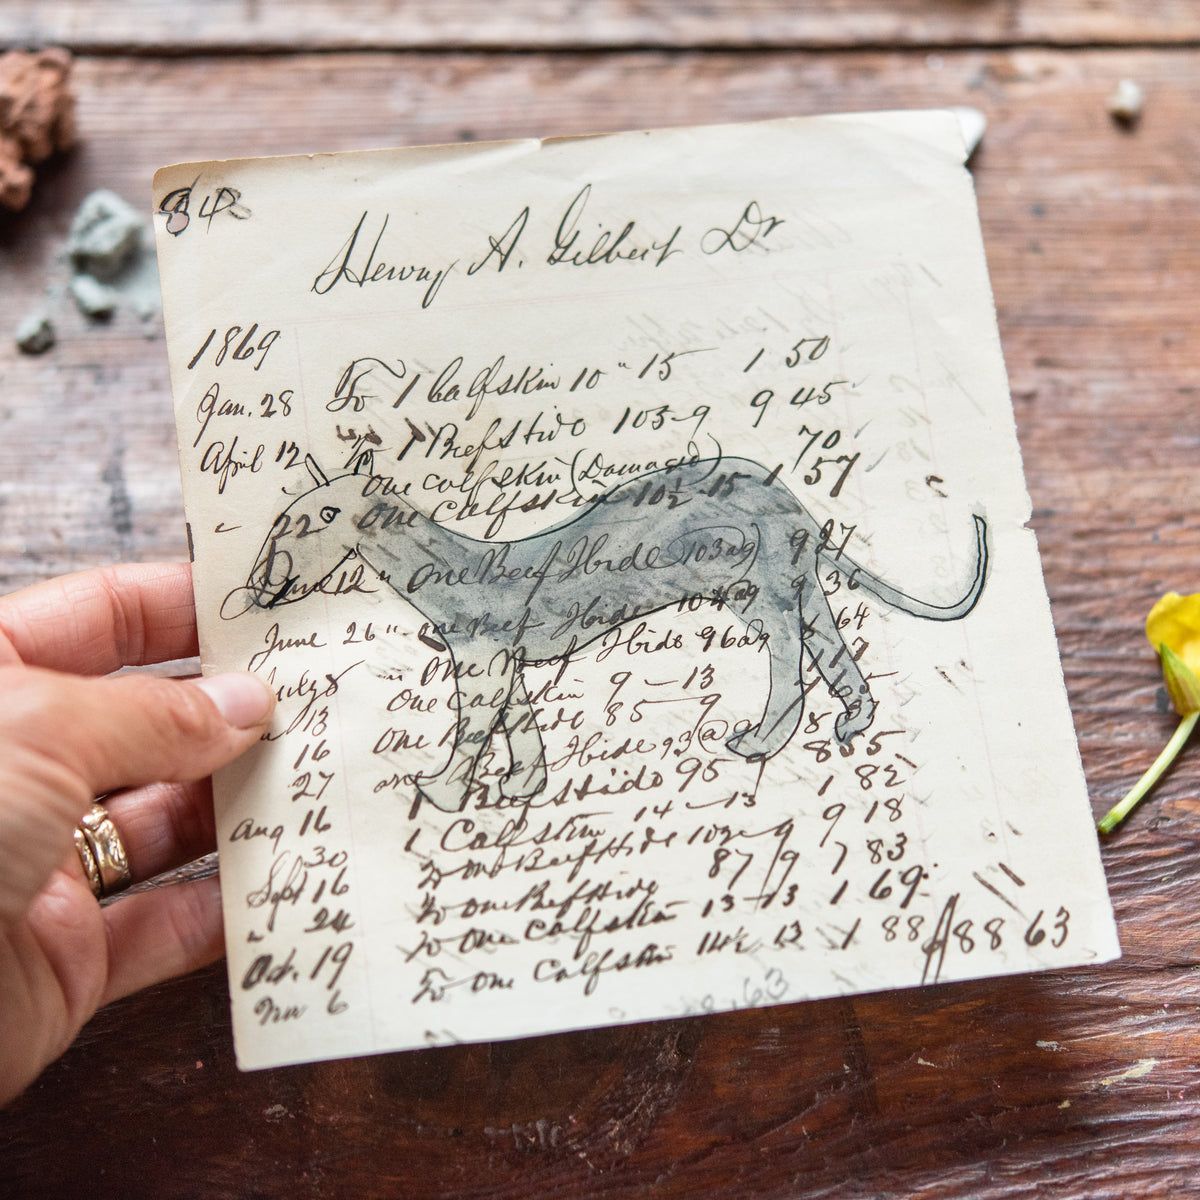 84
Henry A. Gilbert Dr
1869
Jan. 28 To 1 Calfskin 10 " 15 1 50
April 12 To 1 Beefs Hide 103-9 9 45
one calfskin (Damaged) 70
" 22 One Calfskin 10½-15 1 57
June 12 " One Beef Hide (103@9) 9 27
June 26 " one Beef Hide 104@9 9 36
July 8 " One Beef Hide 96@9 8 64
" 13 One Calfskin 9-13 1 17
16 One Beefs Hide 85-9 7 65
27 one Beef Hide 93@9 8 37
Aug 16 1 Beefs Hide 95 9 8 55
30 1 Calfskin 14-13 1 82
Sept 16 To one Beef Hide 102-9 9 18
" 24 To one Beef Hide 87/9 7 83
Oct. 19 To One Calfskin 13-13 1 69
Nov 6 To one Calfskin 14½ 13 1 88 $88 63